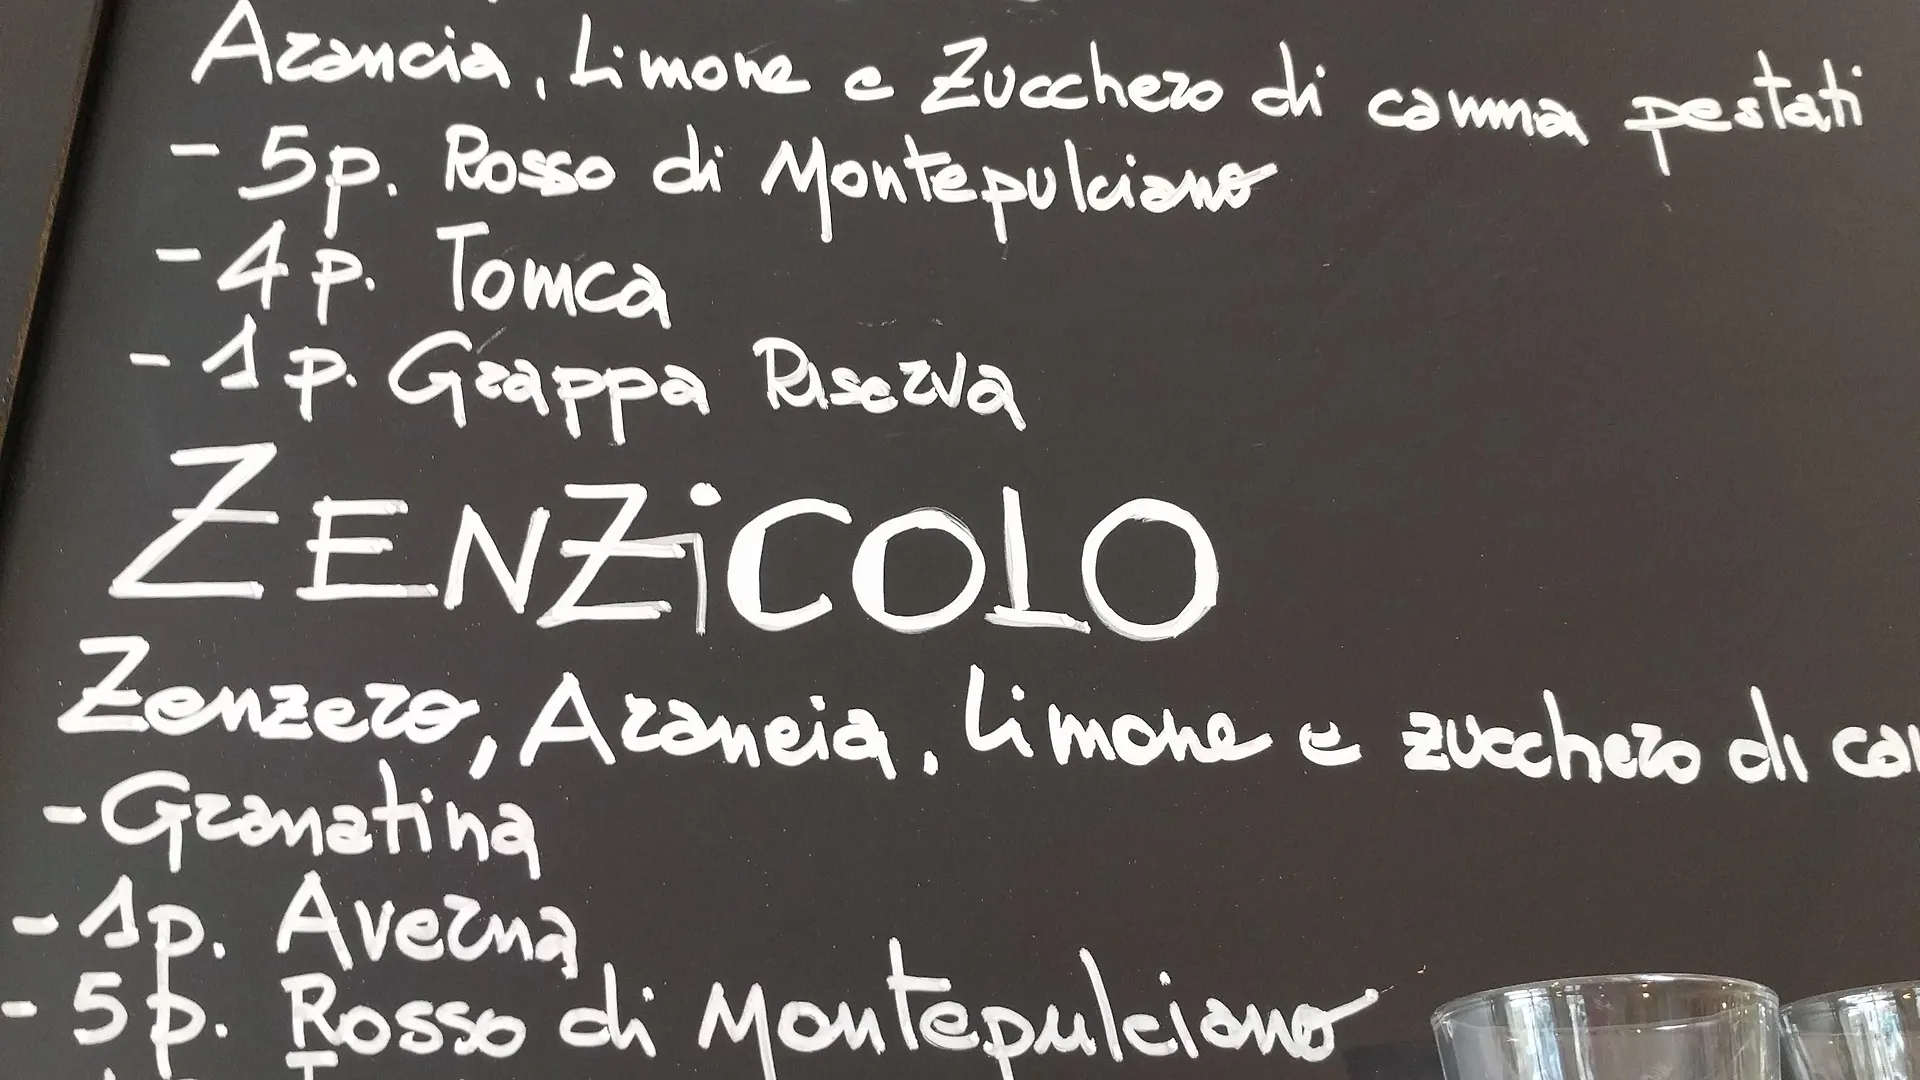 Arancia, Limone e Zucchero di canna pestati
- 5p. Rosso di Montepulciano
- 4p. Tonica
- 1p. Grappa Riserva
ZENZiCOLO
Zenzero, Arancia, Limone e zucchero di can
- Granatina
- 1p. Averna
- 5p. Rosso di Montepulciano